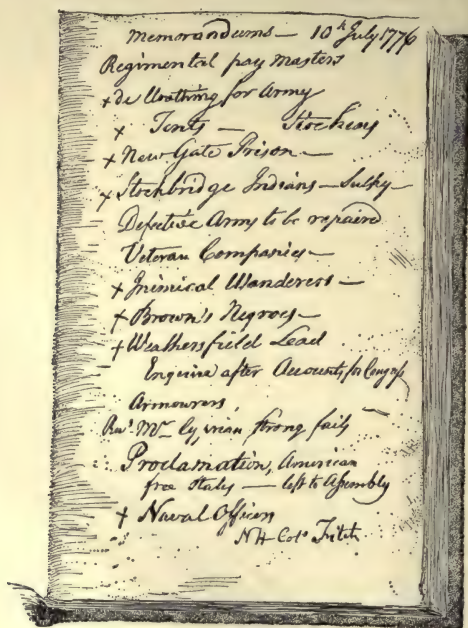 Memorandums — 10th July 1776
Regimental pay masters
+ do Cloathing for Army
+ Tents — Stockens
+ New Gate Prison —
+ Stockbridge Indians — Sulky —
Defective Arms to be repaired
Veteran Companies —
+ Inimical Wanderers —
+ Brown's Negroes —
+ Weathersfield Lead
Enquire after Accounts for Congss
Armourers,
Revd Mr Cyprian Strong fails
Proclamation, American
free States — left to Assembly
+ Naval Officers
NH Colo Fitch